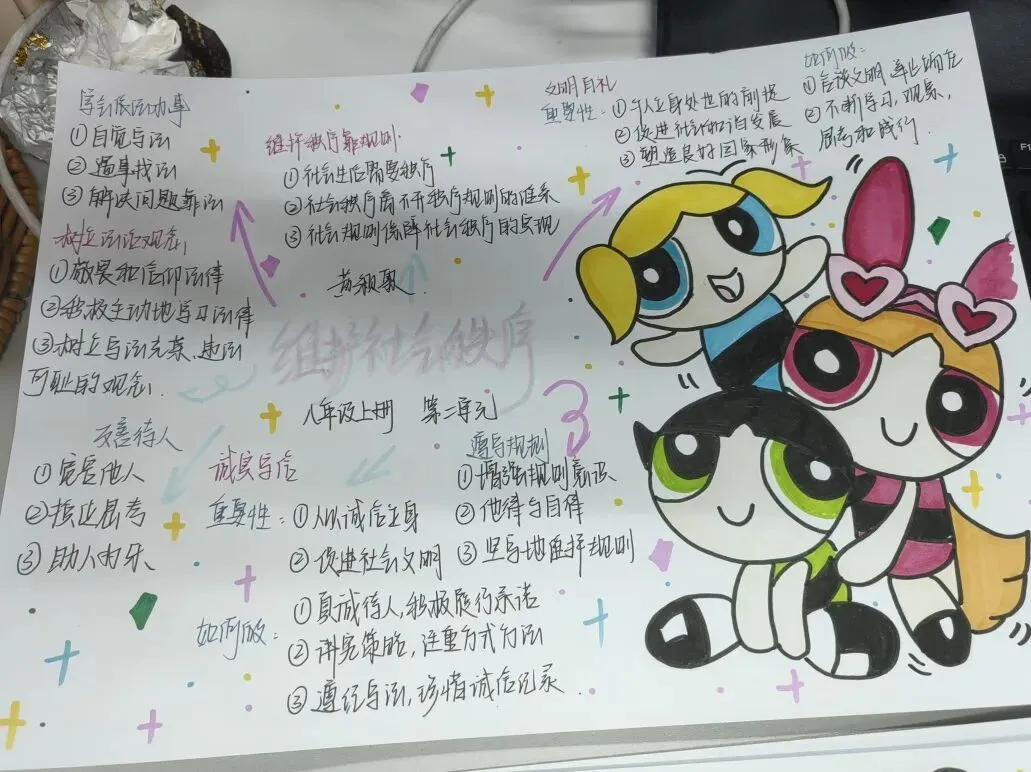 学会依法办事
①自觉守法
②遇事找法
③解决问题靠法
树立法治观念
①敬畏和信仰法律
②积极主动地学习法律
③树立守法光荣、违法
可耻的观念.
维护秩序靠规则.
①社会生活需要秩序
②社会秩序离不开秩序规则的维系
③社会规则保障社会秩序的实现
文明有礼
重要性: ①个人立身处世的前提
②促进社会和谐发展
③塑造良好国家形象
如何做:
①言谈文明,举止端庄
②不断学习,观察,
思考和践行.
维护社会秩序
八年级上册 第二单元
友善待人
①宽容他人
②换位思考
③助人为乐
诚实守信
重要性: ①个人诚信立身
②促进社会文明
如何做: ①真诚待人,积极履行承诺
②讲究策略,注重方式方法
③遵纪守法,珍惜诚信记录
遵守规则
①增强规则意识
②他律与自律
③坚守地选择规则